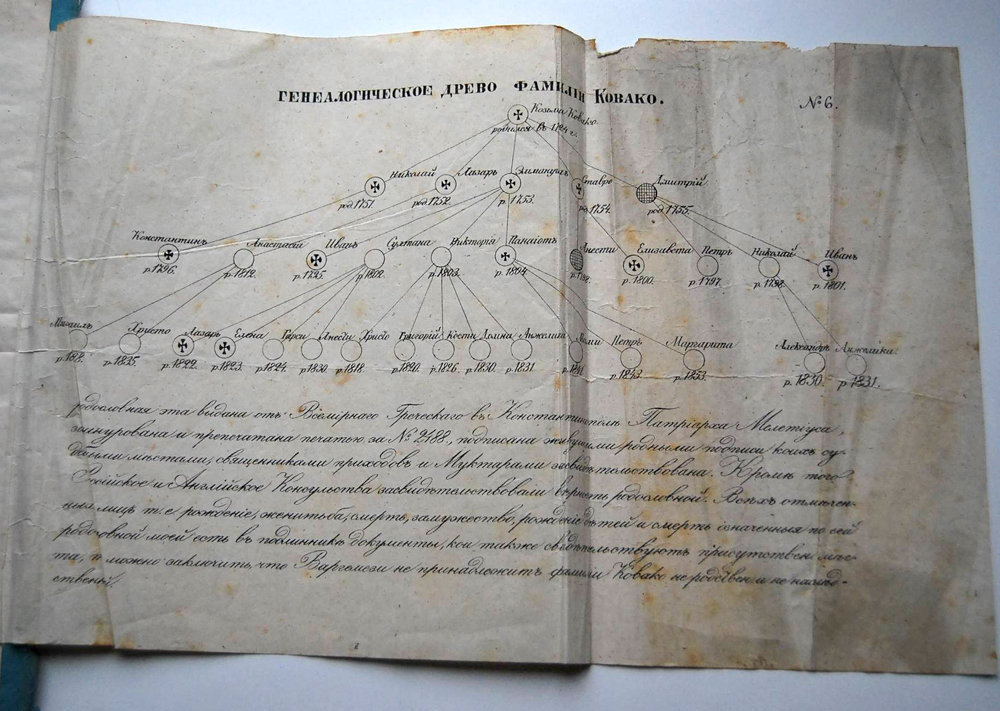 ГЕНЕАЛОГИЧЕСКОЕ ДРЕВО ФАМИЛІИ КОВАКО.
№ 6.
Козьма Ковако
родился въ 1724 г.
Николай Лазарь Эммануилъ Ставро Дмитрій
род. 1751. род. 1752. р. 1753. род. 1754. род. 1755.
Константинъ Анастасія Иванъ Султана Викторія Панаіотъ Анести Елизавета Петръ Николай Иванъ
р. 1796. р. 1812. р. 1795. р. 1802. р. 1803. р. 1804. р. 1798. р. 1800. р. 1797. р. 1798. р. 1801.
Михаилъ Христо Лазарь Елена Анести Христо Григорій Кости Анжелика Петръ Маргарита Александръ Анжелика
р. 1835. р. 1822. р. 1823. р. 1824. р. 1830. р. 1818. р. 1820. р. 1826. р. 1830. р. 1831 р. 1841. р. 1843. р. 1853. р. 1830. р. 1831.
родословная эта выдана отъ Всемірнаго Греческаго въ Константинополѣ Патріарха Мелетіуса,
и препечатана печатью за № 2488, подписана живущими родными подписи коихъ су-
дебными мѣстами, священниками приходовъ и Муктарами засвидѣтельствована. Кромѣ того
Россійское и Англійское Консульства засвидѣтельствовали вѣрность родословной. Всѣхъ отмѣчен-
ныхъ лицъ т. е. рожденіе, женитьба, смерть, замужество, рожденіе дѣтей и смерть означенныхъ по сей
родословной моей есть въ подлинникѣ документы, кои также свидѣтельствуютъ присутствен. мѣс-
та, и можно заключить, что Варгемези не принадлежитъ фамиліи Ковако не родствен. и не наслѣд-
ственъ.